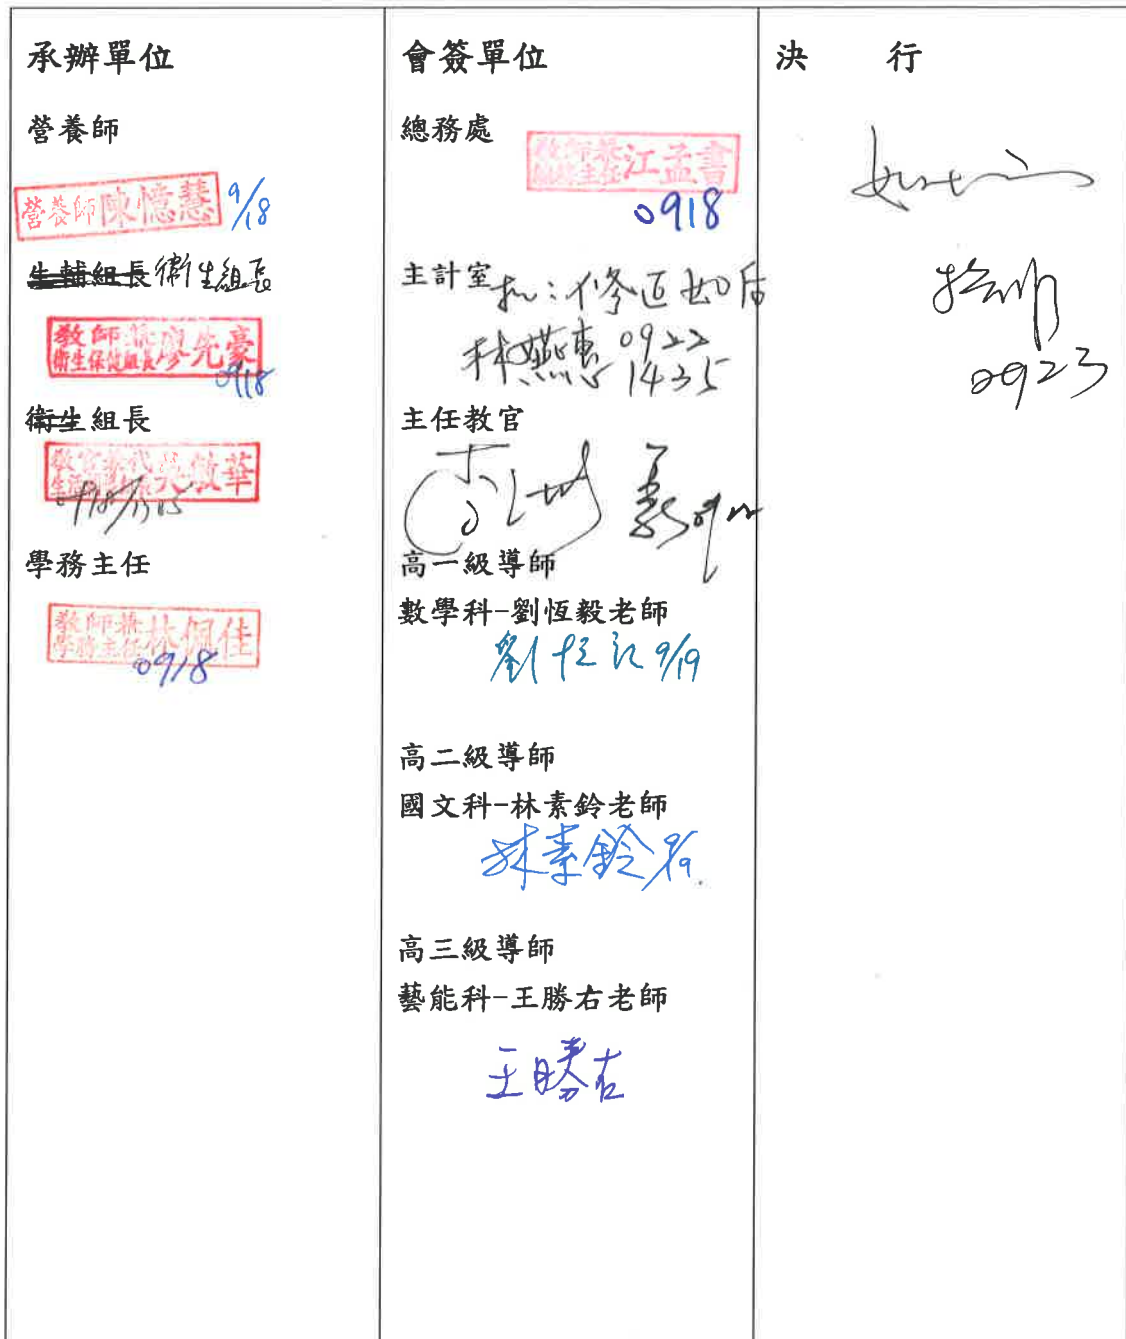 承辦單位
營養師
營養師陳憶慧 9/18
生輔組長衛生組長
教師兼
衛生保健組長廖先豪
0918
衛生組長
敏華
學務主任
教師兼
學務主任林佩佳
0918
會簽單位
總務處
教師兼
總務主任江孟書
0918
主計室
林燕惠 0922
1435
主任教官
高一級導師
數學科-劉恆毅老師
9/19
高二級導師
國文科-林素鈴老師
林素鈴 9/19
高三級導師
藝能科-王勝右老師
王勝右
決 行
0923